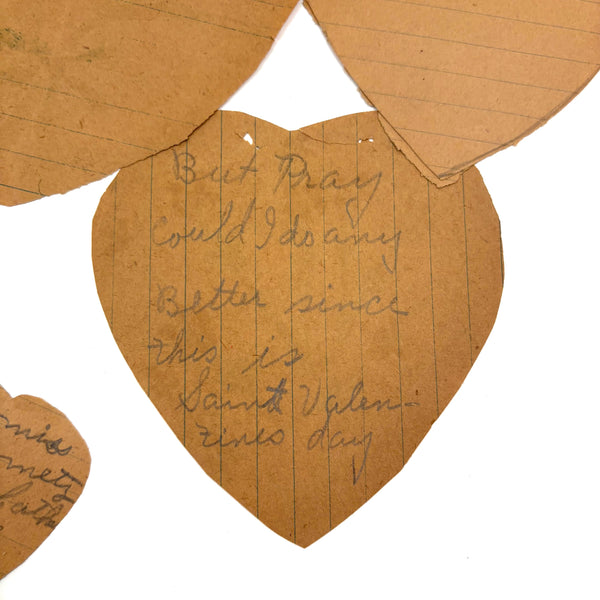 But Pray
Could I do any
Better since
this is
Saint Valen-
tines day
miss